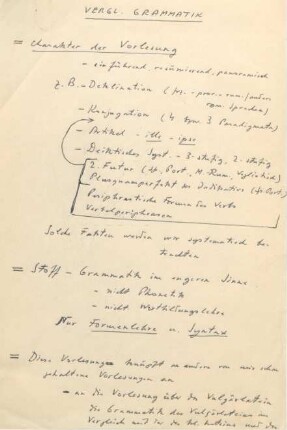 VERGL. GRAMMATIK
= Charakter der Vorlesung
- einführend, resümierend, panoramisch
z.B. - Deklination
- Konjugation (4 bzw. 3 Paradigmata)
- Artikel - ille - ipse
- Deiktisches Syst. - 3-stufig, 2-stufig
2. Futur
Plusquamperfekt im Indikativ
Periphrastische Formen des Verbs
Verbalperiphrasen
Solche Fakten werden wir systematisch be-
trachten
= Stoff - Grammatik im engeren Sinne
- nicht Phonetik
- nicht Wortbildungslehre
Nur Formenlehre u. Syntax
= Diese Vorlesung knüpft an andere von mir schon
gehaltene Vorlesungen an
- an die Vorlesung über das Vulgärlatein
die Grammatik des Vulgärlateins im
Vergleich